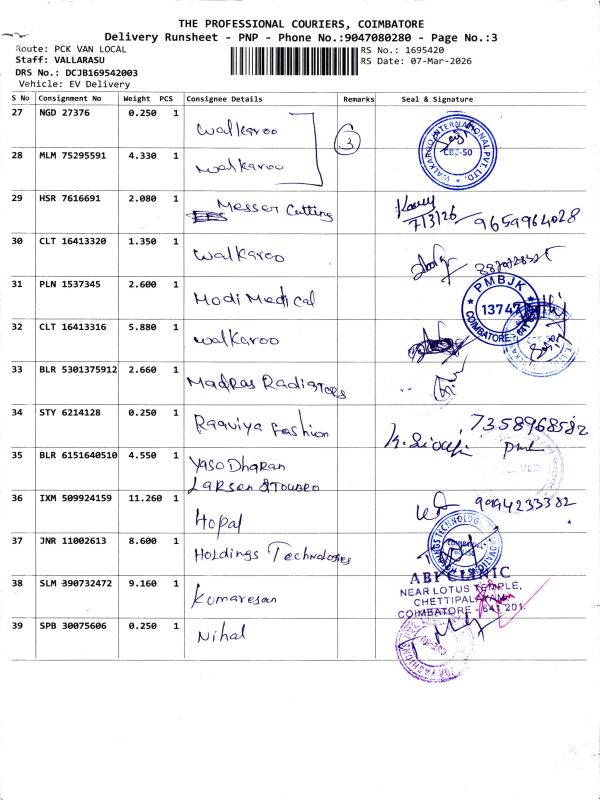 THE PROFESSIONAL COURIERS, COIMBATORE
Delivery Runsheet - PNP - Phone No.:9047080280 - Page No.:3
Route: PCK VAN LOCAL
RS No.: 1695420
Staff: VALLARASU
RS Date: 07-Mar-2026
DRS No.: DCJB169542003
Vehicle: EV Delivery
S No Consignment No Weight PCS Consignee Details Remarks Seal & Signature
27 NGD 27376 0.250 1 Walkaroo 3
WALKAROO INTERNATIONAL PVT. LTD.
CBE-50
28 MLM 75295591 4.330 1 Walkaroo
29 HSR 7616691 2.080 1 Messer Cutting
7/3/26 9659964028
30 CLT 16413320 1.350 1 Walkaroo
31 PLN 1537345 2.600 1 Modi Medical
PMBJK
13747
COIMBATORE - 641
32 CLT 16413316 5.880 1 Walkaroo
33 BLR 5301375912 2.660 1 Madras Radiators
34 STY 6214128 0.250 1 Raguviya Fashion
7358968582
35 BLR 6151640510 4.550 1 Yaso Dharan
Larsen & Toubro
36 IXM 509924159 11.260 1 Hopal
9094233382
37 JNR 11002613 8.600 1 Holdings Technologies
38 SLM 390732472 9.160 1 Kumaresan
ABI CLINIC
NEAR LOTUS TEMPLE,
CHETTIPALAYAM
COIMBATORE - 641 201.
39 SPB 30075606 0.250 1 Nihal